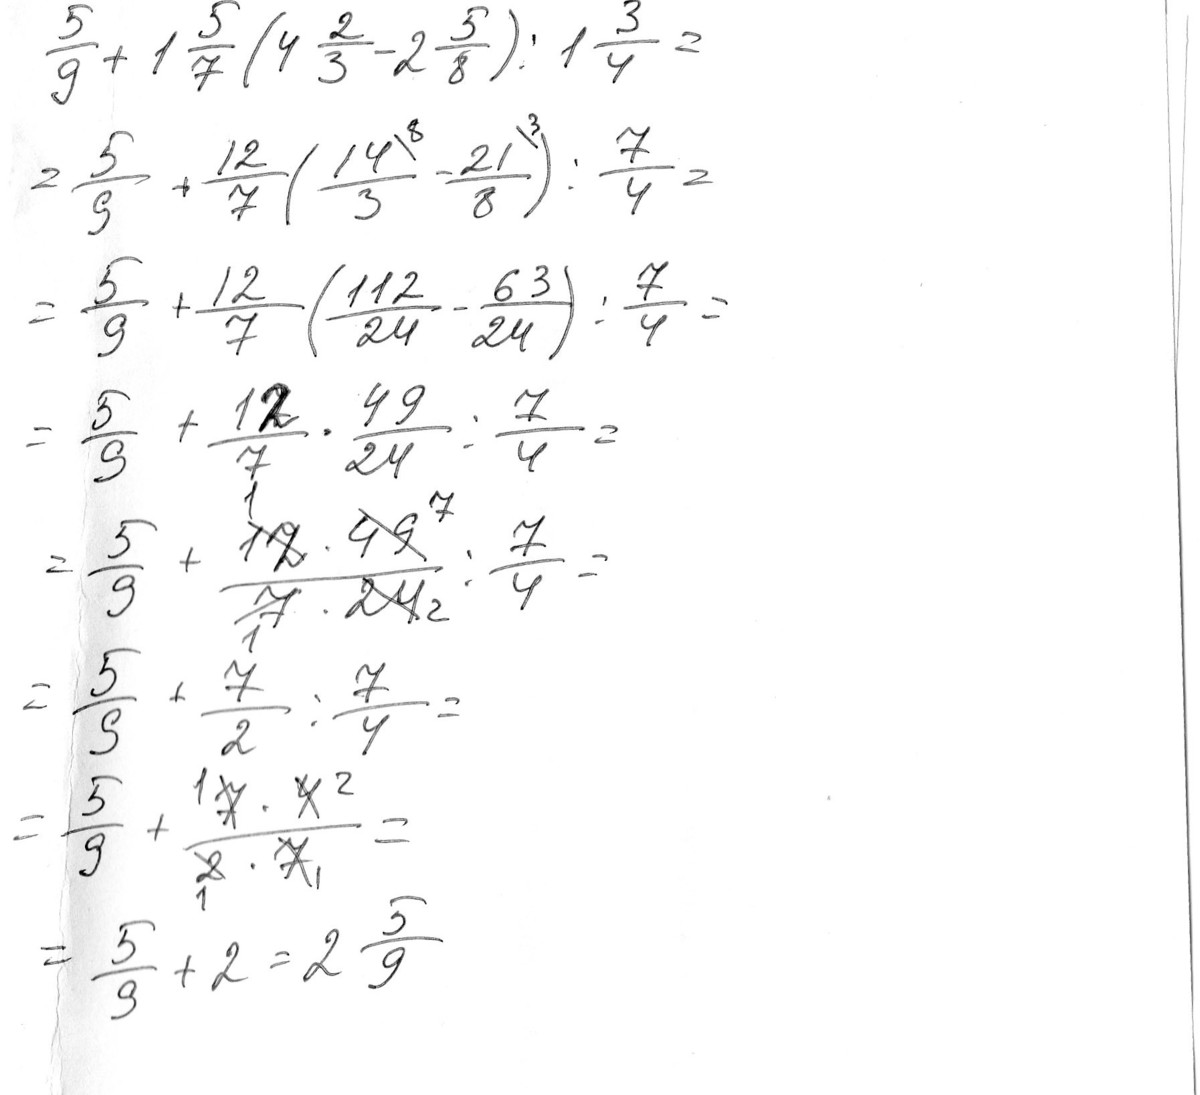 5/9 + 1 5/7 (4 2/3 - 2 5/8) : 1 3/4 =
= 5/9 + 12/7 (14/3 \8 - 21/8 \3) : 7/4 =
= 5/9 + 12/7 (112/24 - 63/24) : 7/4 =
= 5/9 + 12/7 · 49/24 : 7/4 =
= 5/9 + 12 1 · 49 7 / 7 1 · 24 2 : 7/4 =
= 5/9 + 7/2 : 7/4 =
= 5/9 + 1 7 · 4 2 / 2 1 · 7 1 =
= 5/9 + 2 = 2 5/9